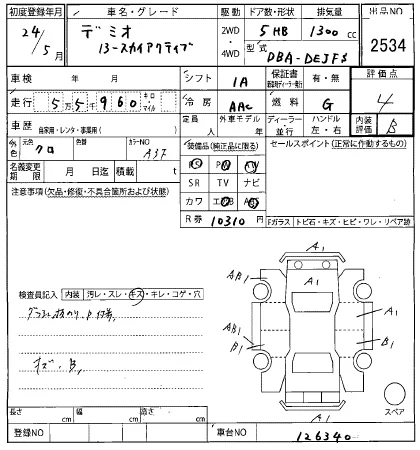 初度登録年月 車名・グレード 駆動 ドア数・形状 排気量 出品NO
24年 5月 デミオ 2WD 4WD 5 HB 1300 cc 2534
13-スカイアクティブ 型式 DBA-DEJFS
車検 年 月 シフト IA 保証書 有・無 評価点
走行 5万5千960 キロ・マイル 冷房 AAC 燃料 G 4
車歴 自家用・レンタ・事業用( ) 定員 人 外車モデル 年 ディーラー・並行 ハンドル 左・右 内装評価 B
外色 元色 クロ 色替 カラーNO A3F 装備品(純正品に限る) セールスポイント(正常に作動するもの)
名義変更期限 月 日迄 積載 t PS PW AW
注意事項(欠品・修復・不具合箇所および状態) SR TV ナビ
カワ エアB ABS
R券 10310 円 Fガラス トビ石・キズ・ヒビ・ワレ・リペア跡
A1
AB1 A1
A1
AB1
B1 B1
A1
スペア
検査員記入 内装 汚レ・スレ・キズ・キレ・コゲ・穴
キズ、B1
長さ cm 幅 cm 高さ cm
登録NO 車台NO 126340